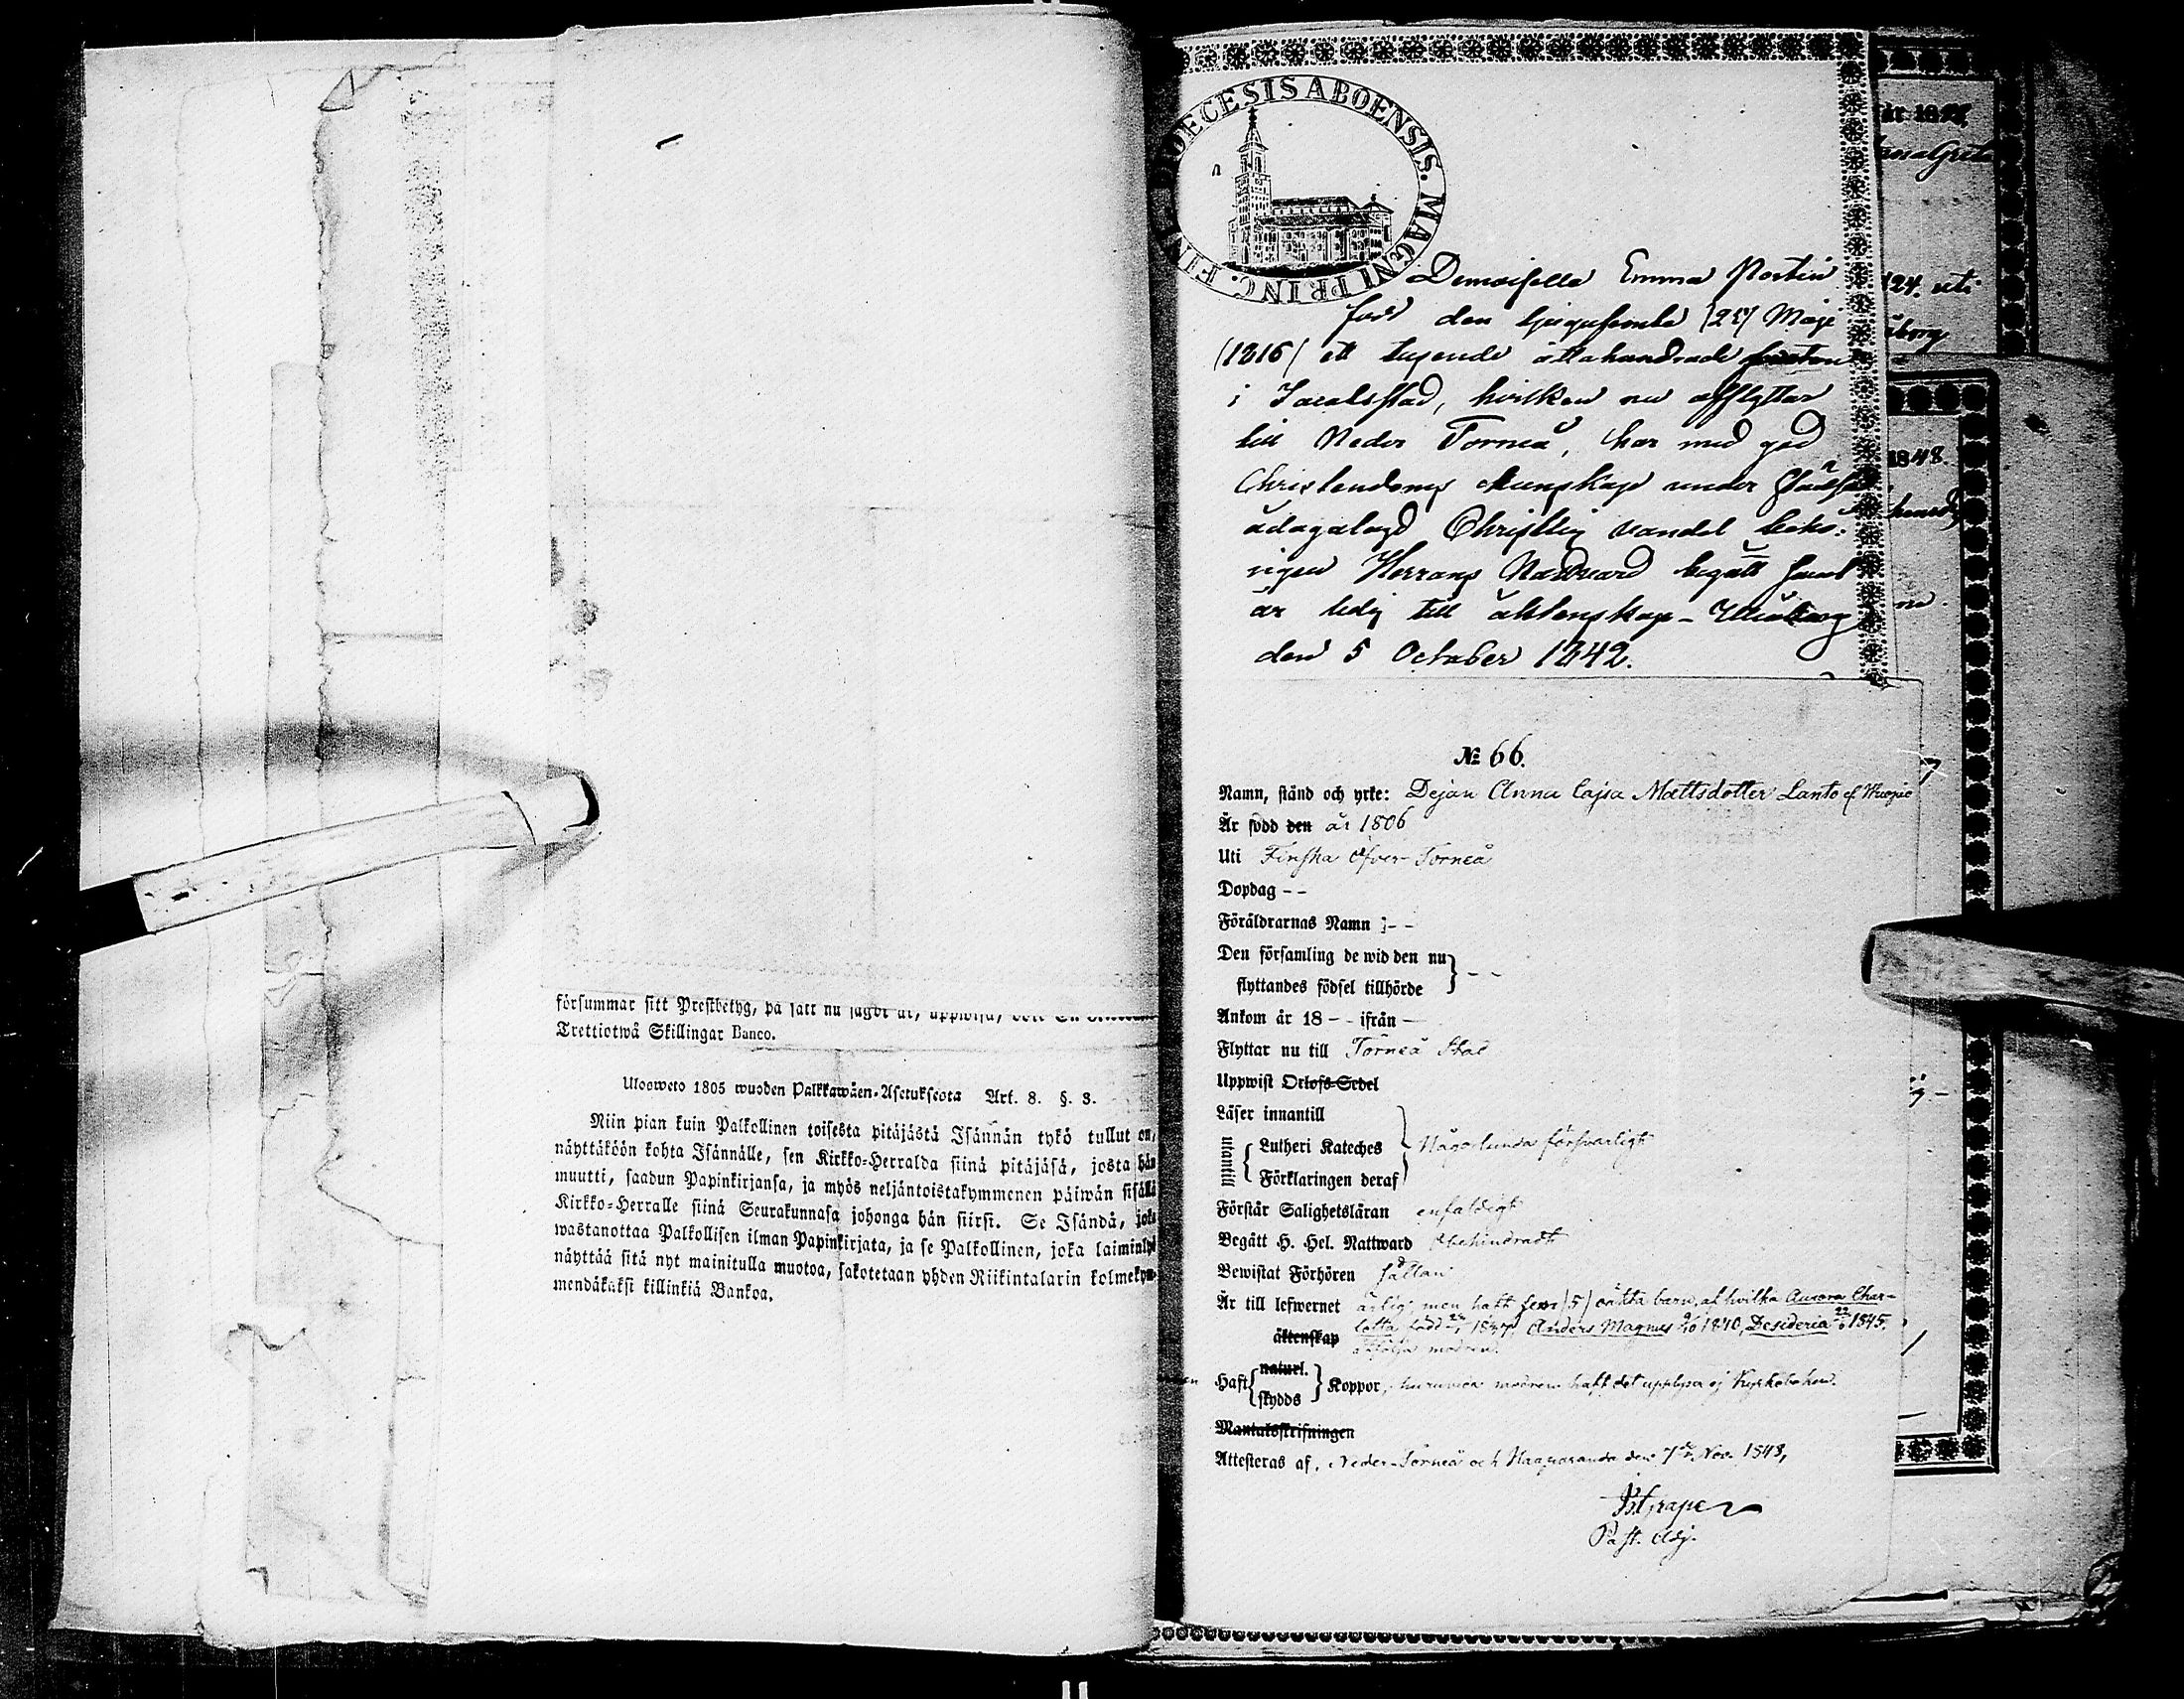 försummar sitt Prestbetyg, på sätt nu sagdt är, uppwisa,
Trettiotwå Skillingar Banco.
Ulosweto 1805 wuoden Palkkawäen-Asetuksesta Art. 8. §. 3.
Niin pian kuin Palkollinen toisesta pitäjästä Isännän tykö tullut on,
näyttäköön kohta Isännälle, sen Kirkko-Herralda siinä pitäjäsä, josta hän
muutti, saadun Papinkirjansa, ja myös neljäntoistakymmenen päiwän sisällä
Kirkko-Herralle siinä Seurakunnasa johonga hän siirsi. Se Isändä, joka
wastanottaa Palkollisen ilman Papinkirjata, ja se Palkollinen, joka laiminlyö
näyttää sitä nyt mainitulla muotoa, sakotetaan yhden Riikintalarin kolmekym-
mendäkaksi killinkiä Bankoa.
DIOECESIS ABOENSIS. MAGNI PRINC. FINL.
Demoiselle Emma Portin
född den tjugufemte (25) Maji
(1816) ett tusende åttahundrade sexton
i Jacobsstad, hvilken nu afflyttar
till Neder Torneå, har med god
Christendoms kunskap under
ådagalagd Christlig vandel beho-
rigen Herrans Nattvard begått samt
är ledig till äktenskap - Uleåborg
den 5 October 1842.
№ 66.
Namn, stånd och yrke: Dejan Anna Cajsa Mattsdotter Lanto ef
Är född den år 1806
Uti Finska Öfver-Torneå
Dopdag - -
Föräldrarnas Namn - -
Den församling de wid den nu
flyttandes födsel tillhörde - -
Ankom år 18 - - ifrån -
Flyttar nu till Torneå Stad
Uppwist Orlofs-Sedel
Läser innantill
utantill Lutheri Kateches Någorlunda försvarligt
Förklaringen deraf
Förstår Salighetsläran enfaldigt
Begått H. Hel. Nattward obehindradt
Bewistat Förhören sällan
Är till lefwernet ärlig, men haft fem (5) oäkta barn, af hvilka Aurora Char-
äktenskap lotta född 1837, Anders Magnus 1840, Desideria 1845.
åtfölja modren.
Haft naturl. skydds Koppor, huruvida modren haft det upplyser ej Kyrkoboken.
Mantalsskrifningen
Attesteras af, Neder-Torneå och Haaparanda den 7de Nov. 1848,
Grape
Past. Adj.
år 18
124. uti
1848.